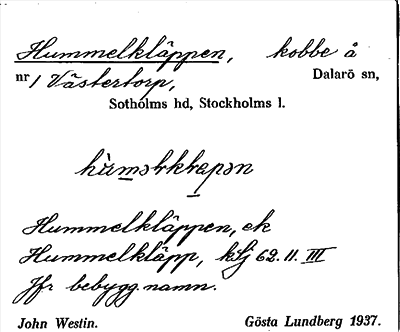 Hummelkläppen, kobbe å
nr 1 Västertorp, Dalarö sn,
Sotholms hd, Stockholms l.
Hummelkläppen, ek
Hummelkläpp, 62. II. III
Jfr bebygg. namn.
John Westin. Gösta Lundberg 1937.